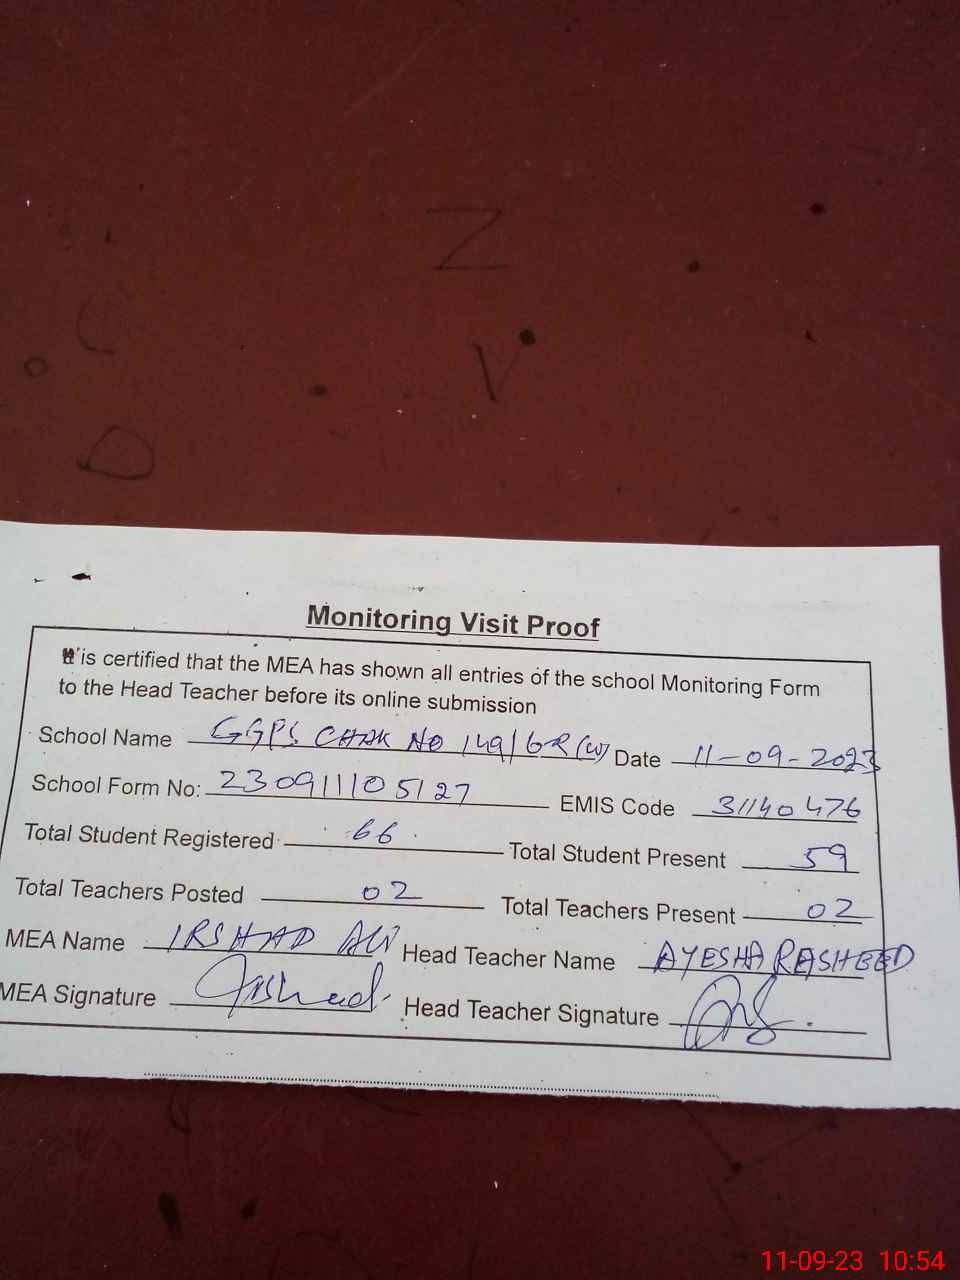 Z
V
Monitoring Visit Proof
It is certified that the MEA has shown all entries of the school Monitoring Form
to the Head Teacher before its online submission
School Name GGPS CHAK NO 149/6R(W) Date 11-09-2023
School Form No: 230911105127 EMIS Code 31140476
Total Student Registered 66 Total Student Present 59
Total Teachers Posted 02 Total Teachers Present 02
MEA Name IRSHAD ALI Head Teacher Name AYESHA RASHEED
MEA Signature Irshad Head Teacher Signature
11-09-23 10:54